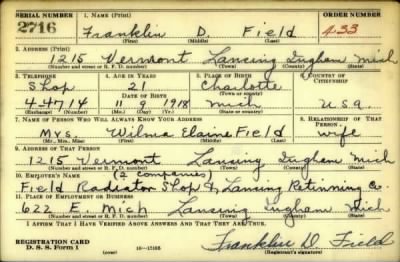 SERIAL NUMBER 1. NAME (Print) ORDER NUMBER
2716 Franklin D. Field 433
(First) (Middle) (Last)
2. ADDRESS (Print)
1215 Vermont Lansing Ingham Mich
(Number and street or R. F. D. number) (Town) (County) (State)
3. TELEPHONE 4. AGE IN YEARS 5. PLACE OF BIRTH 6. COUNTRY OF CITIZENSHIP
Shop 21 Charlotte
DATE OF BIRTH (Town or county)
4-4714 11 9 1918 Mich U.S.A.
(Exchange) (Number) (Mo.) (Day) (Yr.) (State or country)
7. NAME OF PERSON WHO WILL ALWAYS KNOW YOUR ADDRESS 8. RELATIONSHIP OF THAT PERSON
Mrs. Wilma Elaine Field wife
(Mr., Mrs., Miss) (First) (Middle) (Last)
9. ADDRESS OF THAT PERSON
1215 Vermont Lansing Ingham Mich
(Number and street or R. F. D. number) (Town) (County) (State)
10. EMPLOYER'S NAME (2 companies)
Field Radiator Shop & Lansing Retinning Co
11. PLACE OF EMPLOYMENT OR BUSINESS
622 E. Mich Lansing Ingham Mich
(Number and street or R. F. D. number) (Town) (County) (State)
I AFFIRM THAT I HAVE VERIFIED ABOVE ANSWERS AND THAT THEY ARE TRUE.
REGISTRATION CARD
D. S. S. Form 1 (over) Franklin D Field
(Registrant's signature)